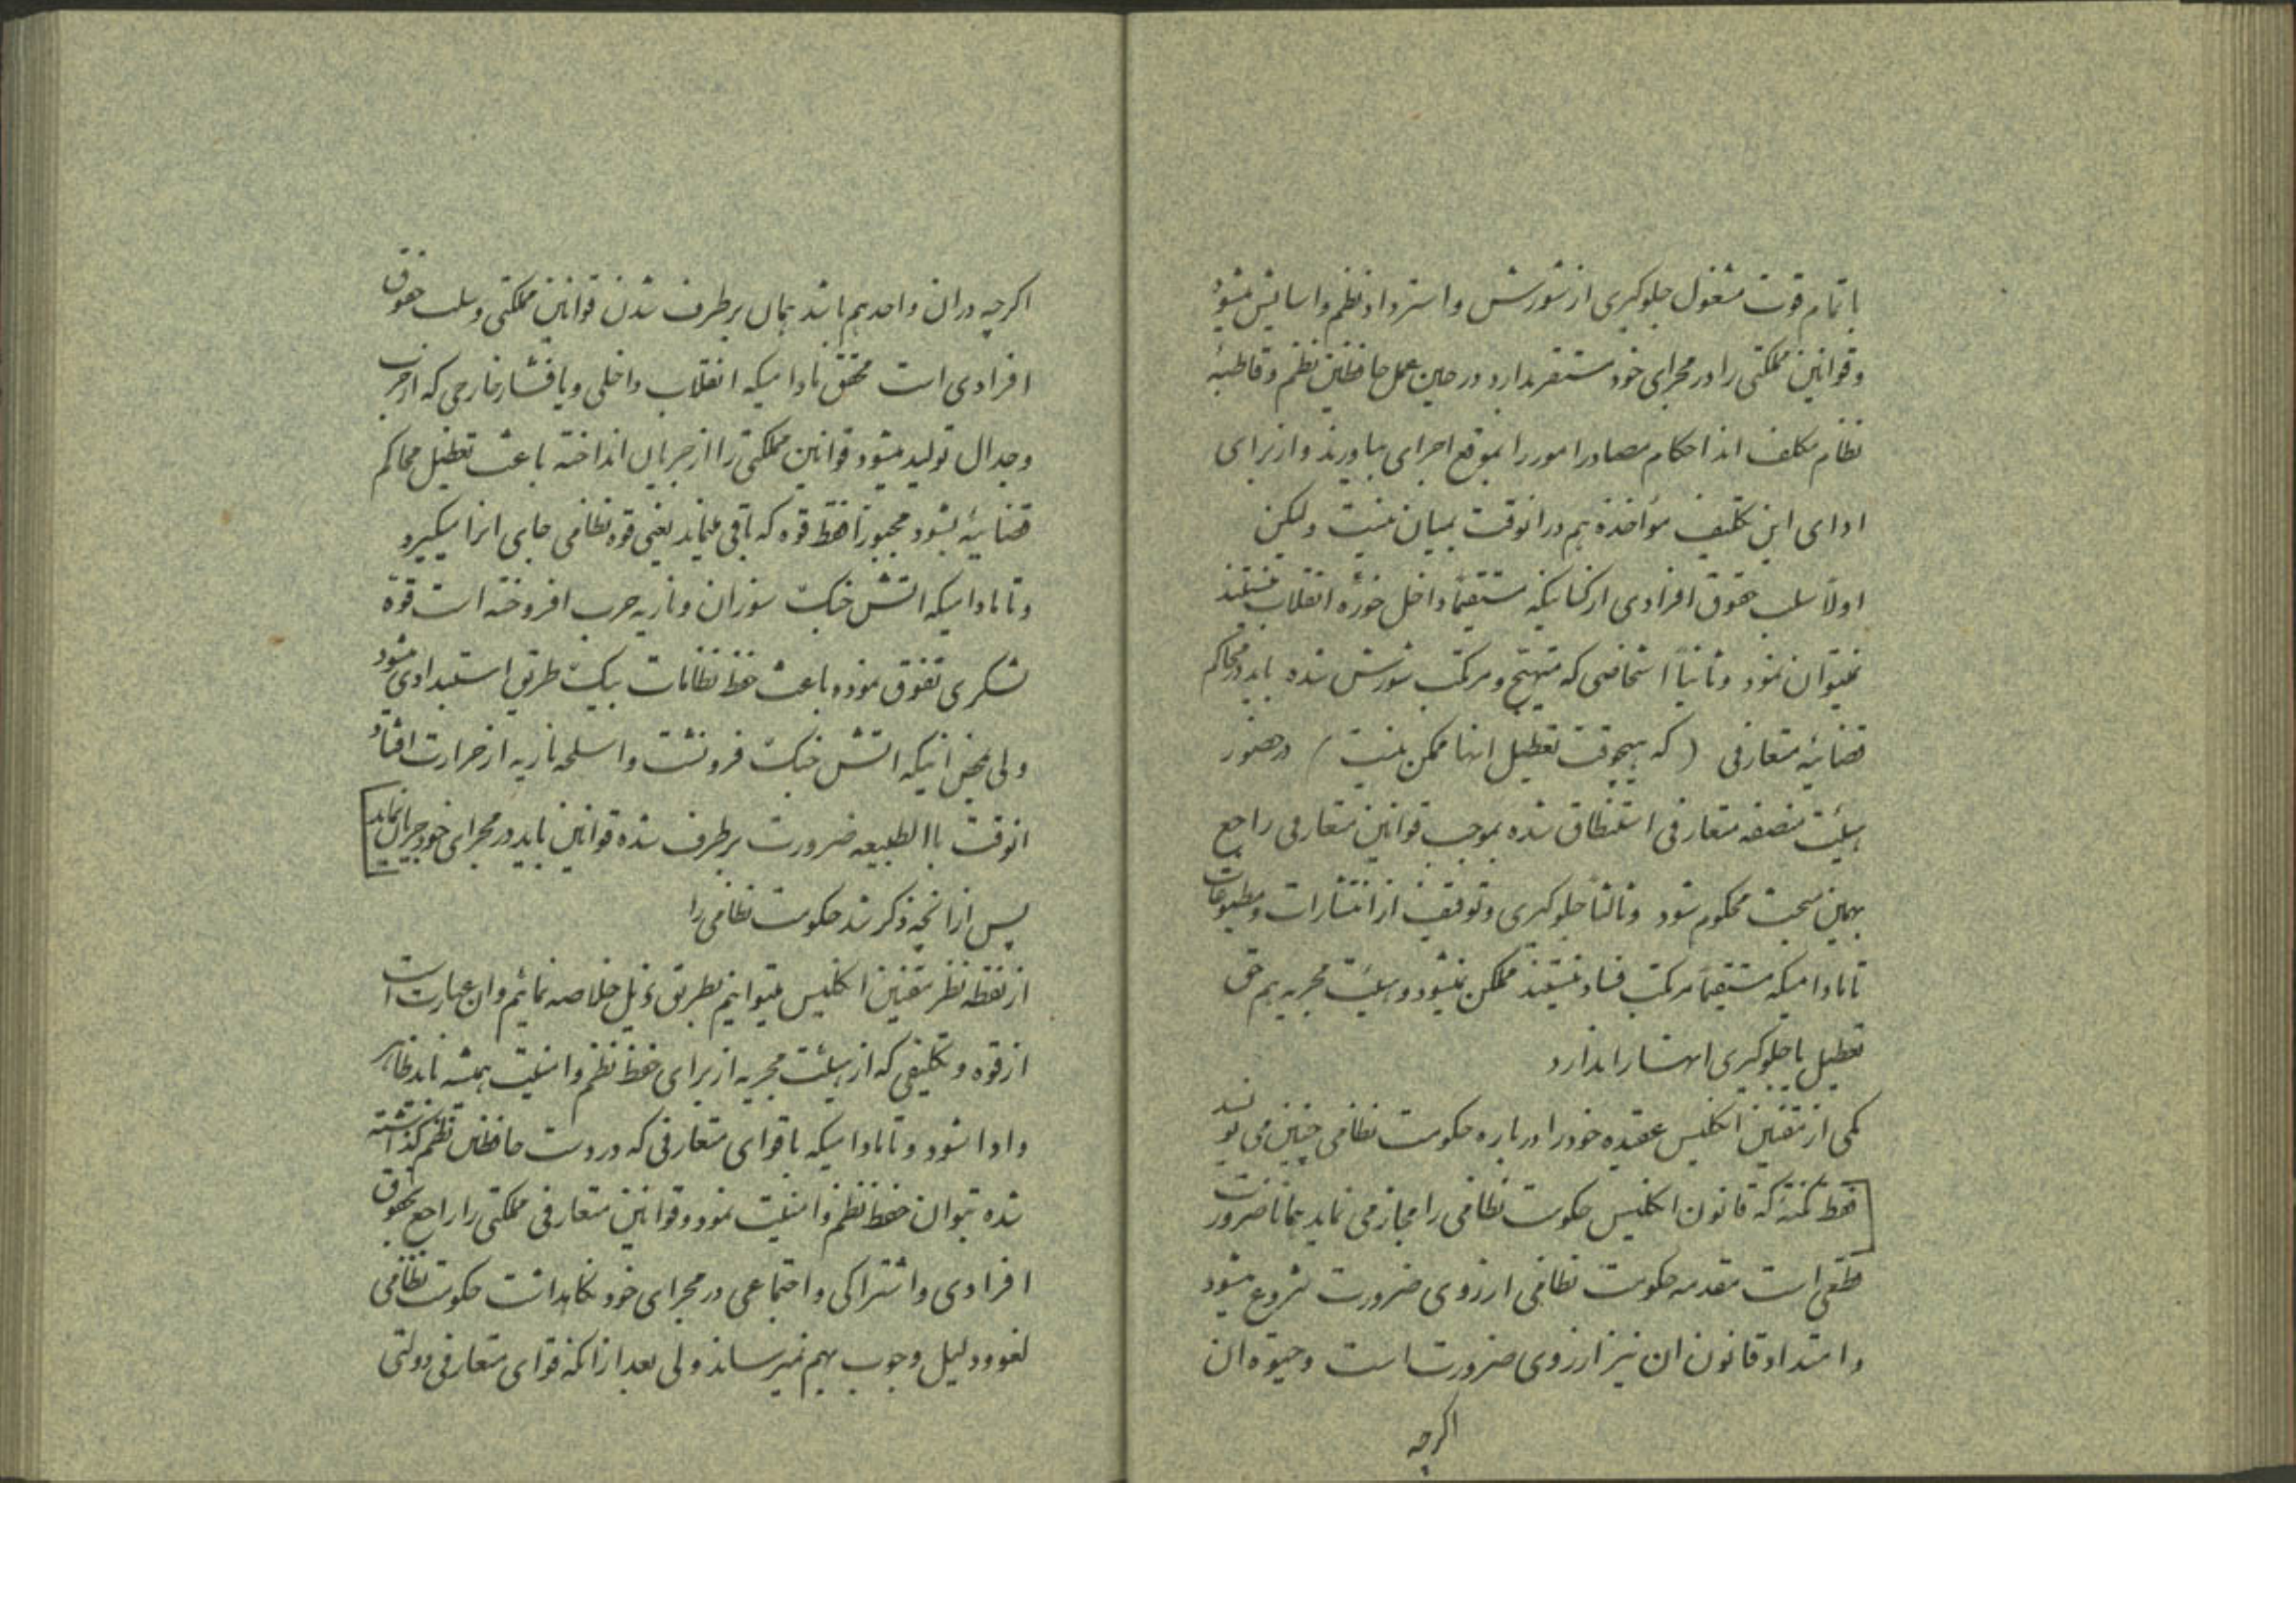 با تمام قوت مشغول جلوگیری از شورش و استرداد نظم و اسایش میشود
و قوانین مملکتی را در مجرای خود مستقر بدارد در حین عمل حافظین نظم و قاطبهٔ
نظام مکلف اند احکام مصادر امور را بموقع اجرای بیاورند و از برای
ادای این تکلیف مؤاخذه هم در انوقت بمیان نیست ولیکن
اولاً سلب حقوق افرادی از کسانیکه مستقیماً داخل حوزه انقلاب نیستند
نمیتوان نمود و ثانیاً اشخاصی که متهیج و مرتکب شورش شده باید در محاکم
قضائیه متعارفی (که هیچوقت تعطیل انها ممکن نیست) در حضور
هیئت منصفه متعارفی استنطاق شده بموجب قوانین متعارفی راجع
بهمین مبحث محکوم شود و ثالثاً جلوگیری و توقیف از انتشارات و مطبوعات
تا مادامیکه مستقیماً مرتکب فساد نیستند ممکن نمیشود و هیئت مجریه هم حق
تعطیل یا جلوگیری انها را ندارد
یکی از مقنین انگلیس عقیده خود را درباره حکومت نظامی چنین می نویسد
فقط نکتهٔ که قانون انگلیس حکومت نظامی را مجاز می نماید همانا ضرورت
قطعی است مقدمه حکومت نظامی از روی ضرورت شروع میشود
و امتداد قانون ان نیز از روی ضرورت است و حیوة ان
اگرچه
اگرچه در ان واحد هم باشد همان برطرف شدن قوانین مملکتی و سلب حقوق
افرادی است محقق مادامیکه انقلاب داخلی و یا فشار خارجی که از حرب
و جدال تولید میشود قوانین مملکتی را از جریان انداخته باعث تعطیل محاکم
قضائیه بشود مجبوراً فقط قوه که باقی میماند یعنی قوه نظامی جای انرا میگیرد
و تا مادامیکه اتش جنگ سوزان و ناریه حرب افروخته است قوهٔ
لشکری تفوق نموده باعث حفظ نظامات بیک طریق استبدادی میشود
ولی بمحض انیکه اتش جنگ فرونشست و اسلحه ناریه از حرارت افتاد
انوقت باالطبیعه ضرورت برطرف شده قوانین باید در مجرای خود جریان نماید
پس از انچه ذکر شد حکومت نظامی را
از نقطه نظر مقنین انگلیس میتوانیم بطریق ذیل خلاصه نمائیم و ان عبارت است
از قوه و تکلیفی که از هیئت مجریه از برای حفظ نظم و امنیت همیشه باید ظاهر
و ادا شود و تا مادامیکه با قوای متعارفی که در دست حافظین نظم گذاشته
شده بتوان حفظ نظم و امنیت نمود و قوانین متعارفی مملکتی را راجع بحقوق
افرادی و اشتراکی و اجتماعی در مجرای خود نگاهداشت حکومت نظامی
لغو و دلیل وجوب بهم نمیرساند ولی بعد از انکه قوای متعارفی دولتی